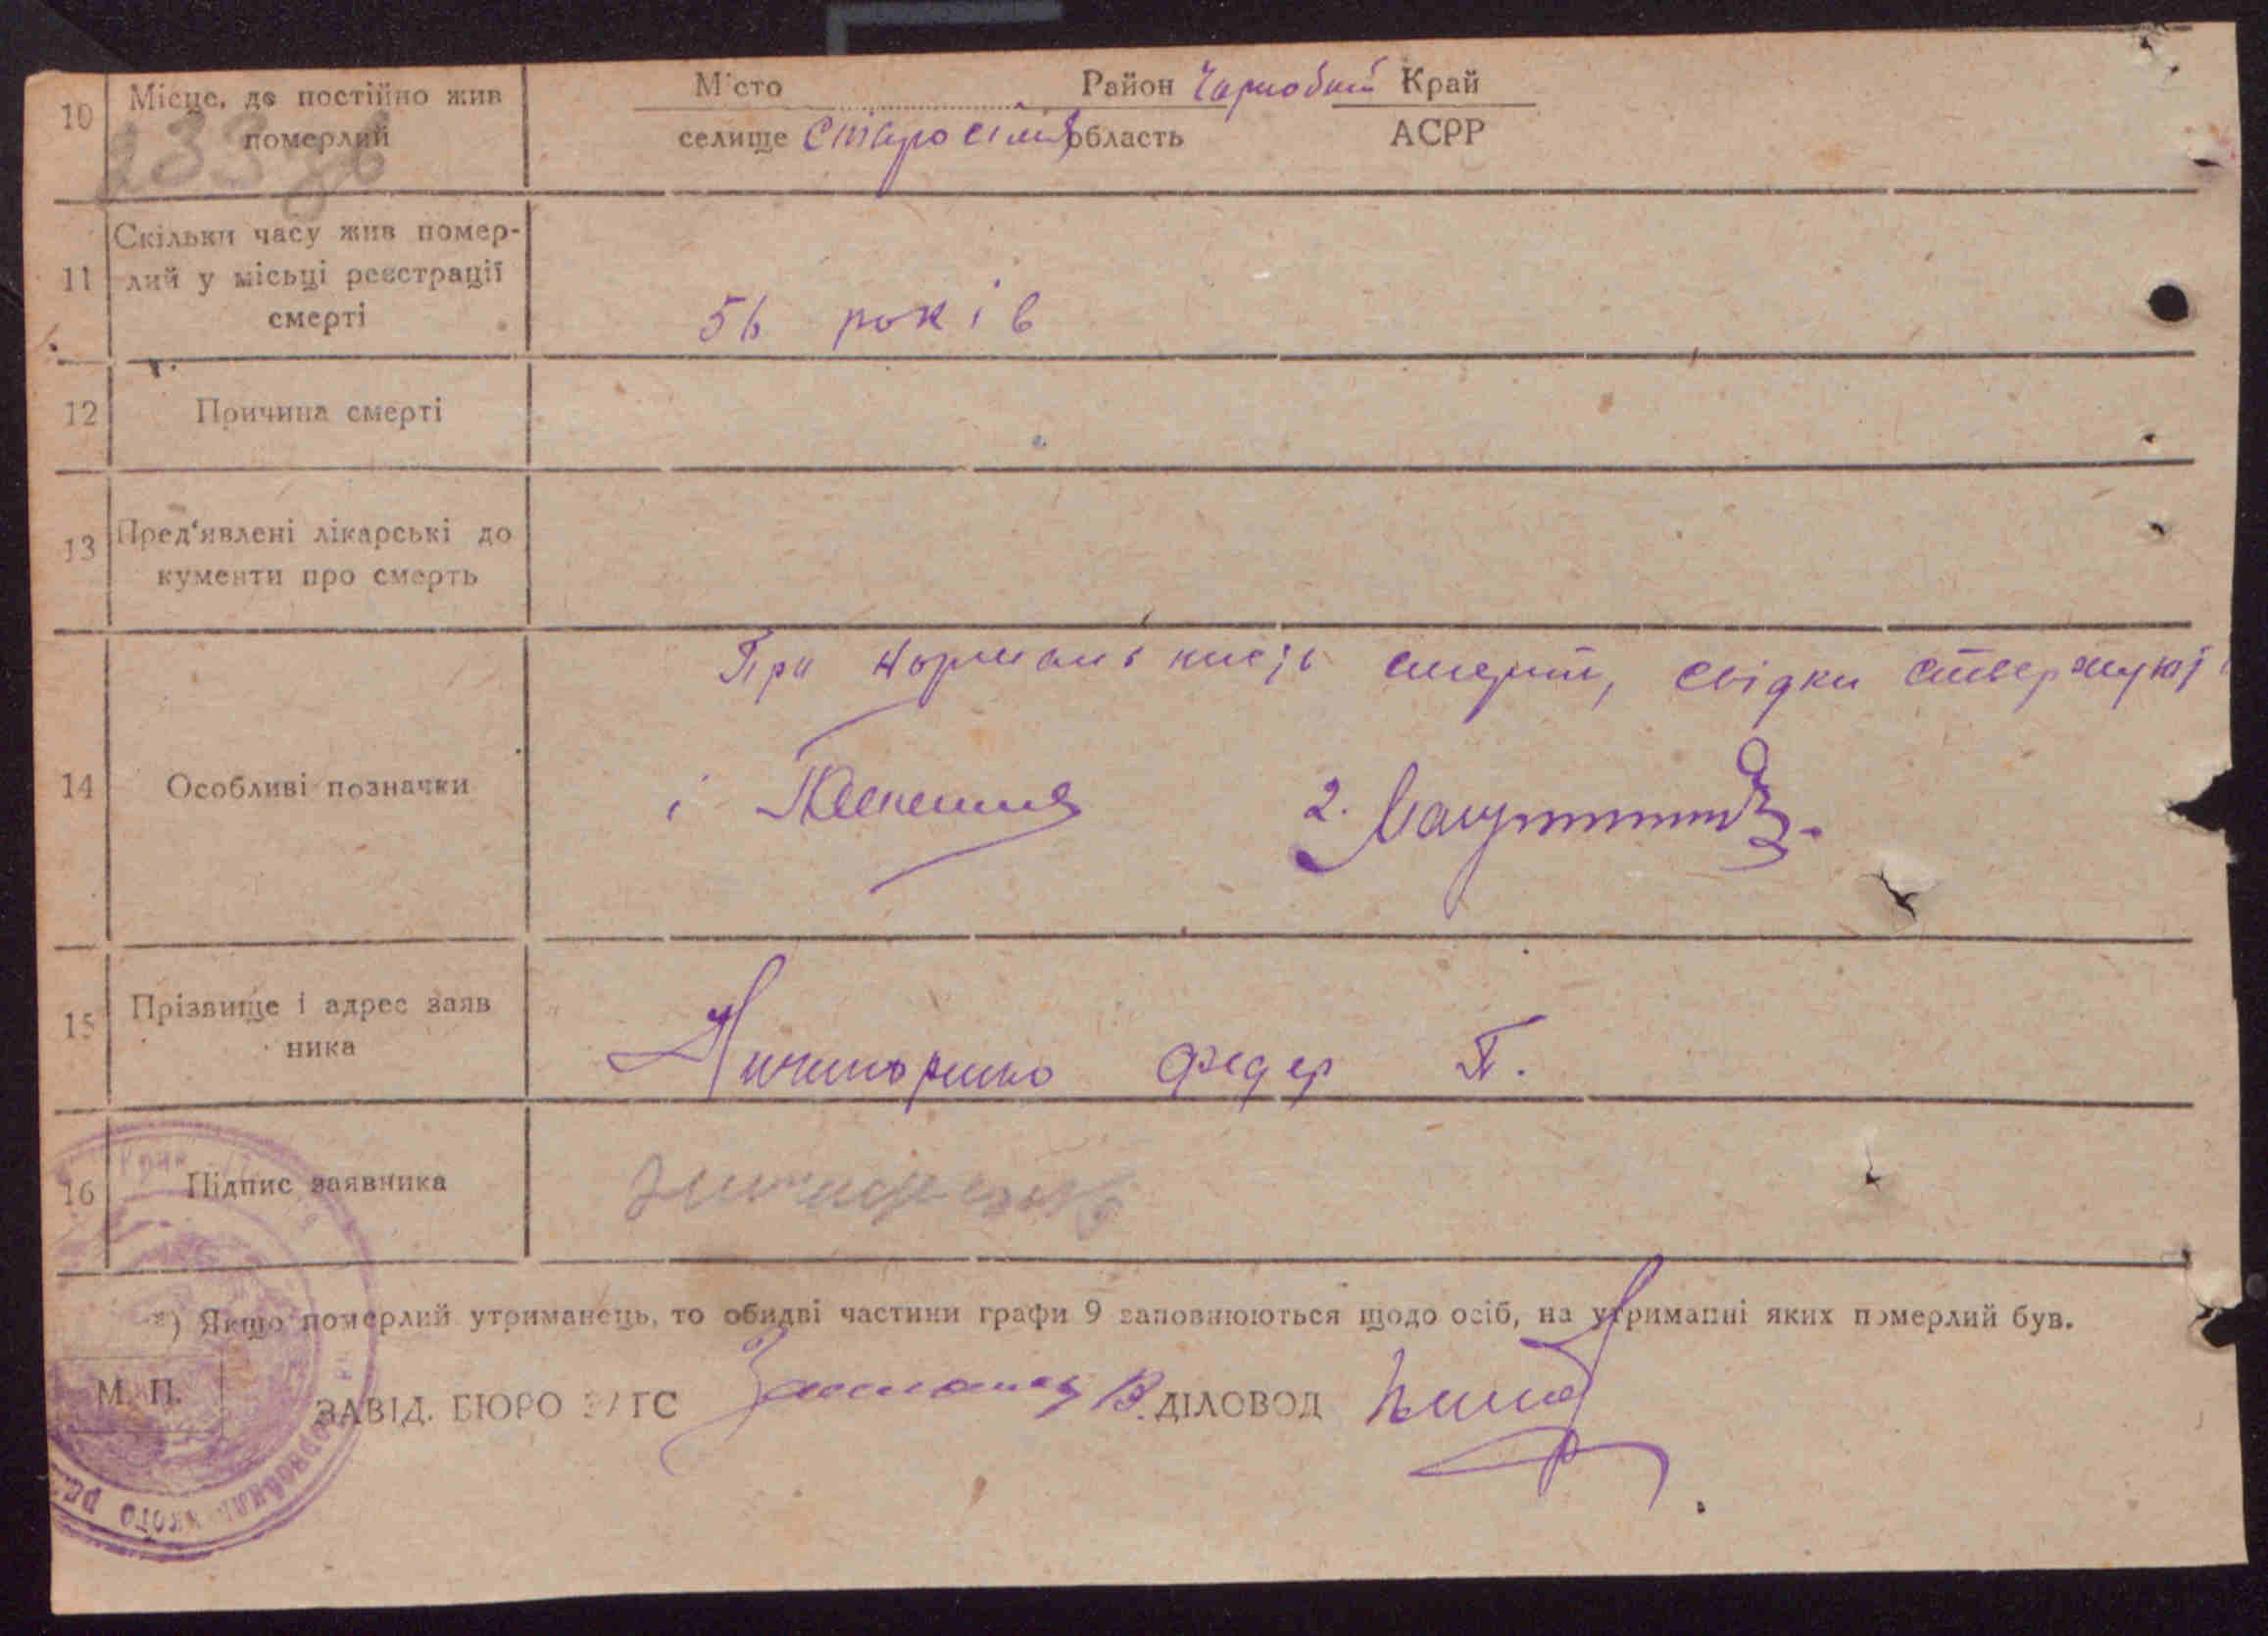 10 Місце, де постійно жив
померлий
Місто Район Чорнобай Край
селище Старосілля область АСРР
233
11 Скільки часу жив помер-
лий у місьці реєстрації
смерті
56 років
12 Причина смерті
13 Пред'явлені лікарські до
кументи про смерть
14 Особливі позначки
При нормальність смерті, свідки ствержують
1
2.
15 Прізвище і адрес заяв
ника
Ничипоренко Федер П.
16 Підпис заявника
*) Якщо померлий утриманець, то обидві частини графи 9 заповнюються щодо осіб, на утриманні яких померлий був.
М. П.
ЗАВІД. БЮРО ЗАГС ДІЛОВОД